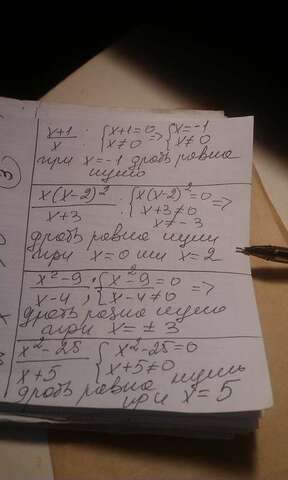 3
x+1/x : {x+1=0 x≠0 => {x=-1 x≠0
при x=-1 дробь равна
нулю
x(x-2)²/x+3 : {x(x-2)²=0 x+3≠0 x≠-3 =>
дробь равна нулю
при x=0 или x=2
x²-9/x-4 ; {x²-9=0 x-4≠0 =>
дробь равна нулю
при x=±3
x²-25/x+5 {x²-25=0 x+5≠0
дробь равна нуль
при x=5